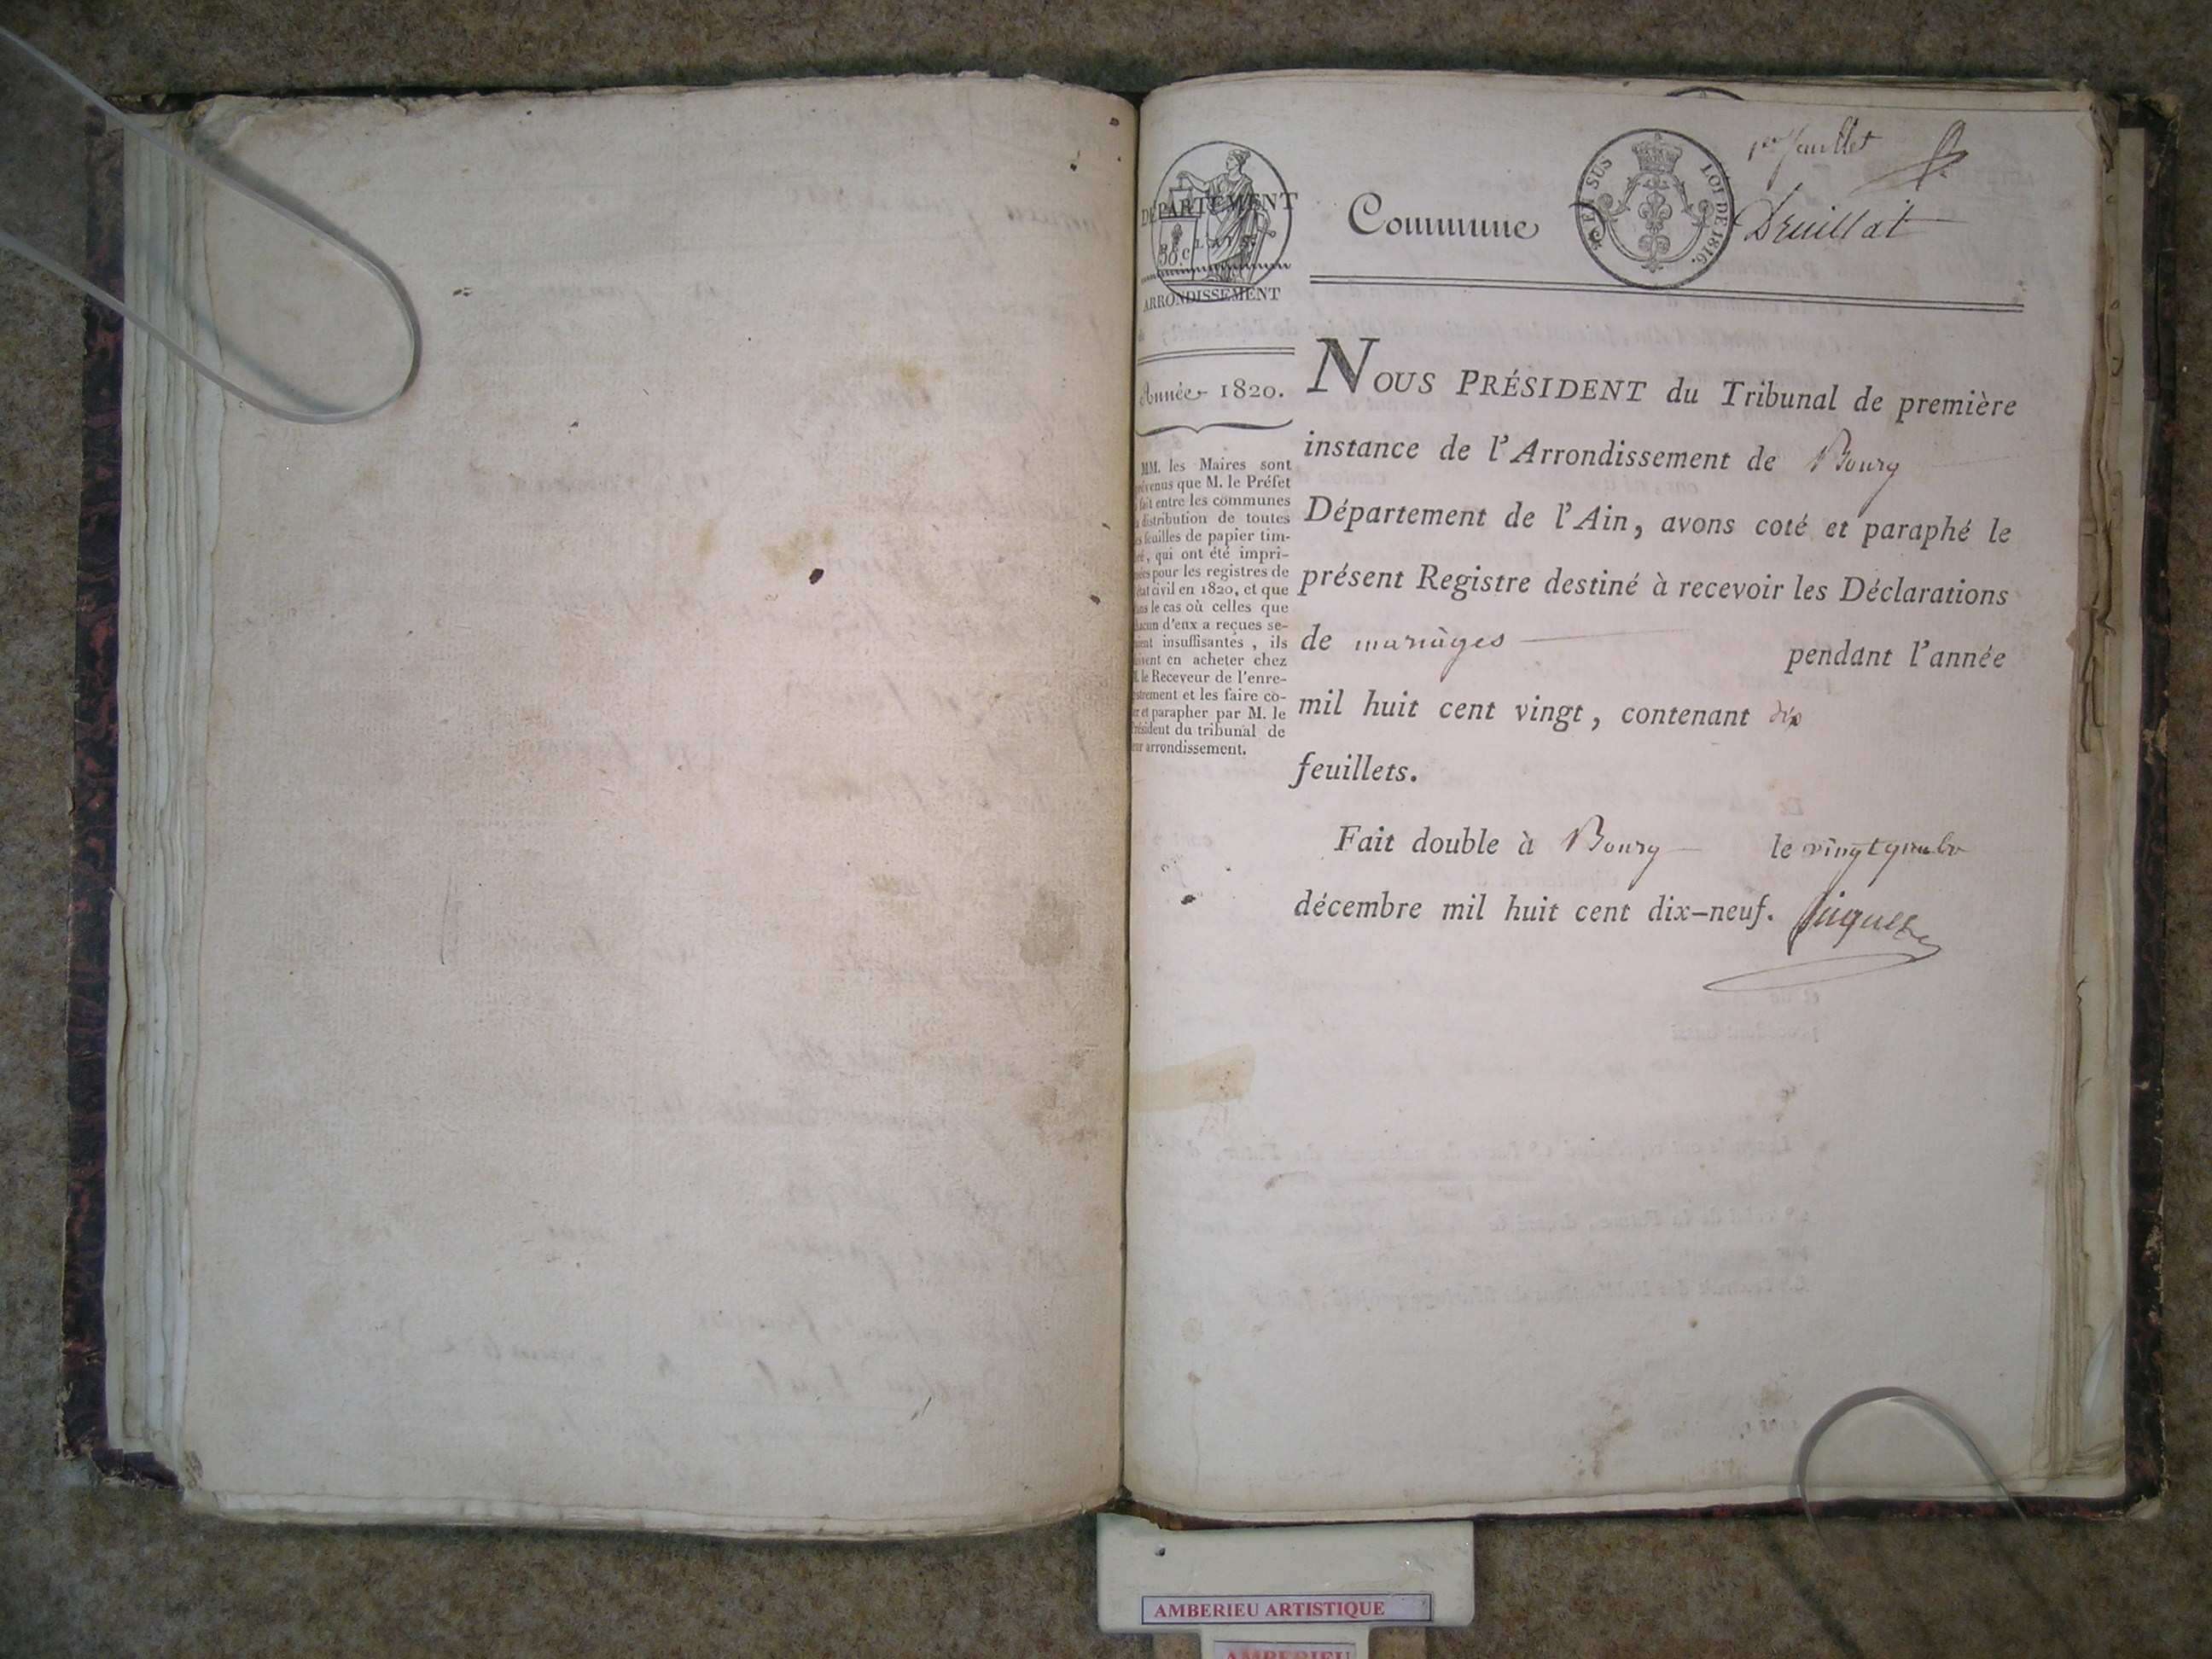 1er feuillet
DÉPARTEMENT
50.c
ARRONDISSEMENT
Commune
EN SUS
LOI DE 1816.
Druillat
Année 1820.
MM. les Maires sont
prévenus que M. le Préfet
a fait entre les communes
la distribution de toutes
les feuilles de papier tim-
bré, qui ont été impri-
mées pour les registres de
l'état civil en 1820, et que
dans le cas où celles que
chacun d'eux a reçues se-
raient insuffisantes, ils
doivent en acheter chez
M. le Receveur de l'enre-
gistrement et les faire co-
ter et parapher par M. le
Président du tribunal de
leur arrondissement.
NOUS PRÉSIDENT du Tribunal de première
instance de l'Arrondissement de Bourg
Département de l'Ain, avons coté et paraphé le
présent Registre destiné à recevoir les Déclarations
de mariages pendant l'année
mil huit cent vingt, contenant dix
feuillets.
Fait double à Bourg le vingt quatre
décembre mil huit cent dix-neuf.
AMBERIEU ARTISTIQUE
AMBERIEU